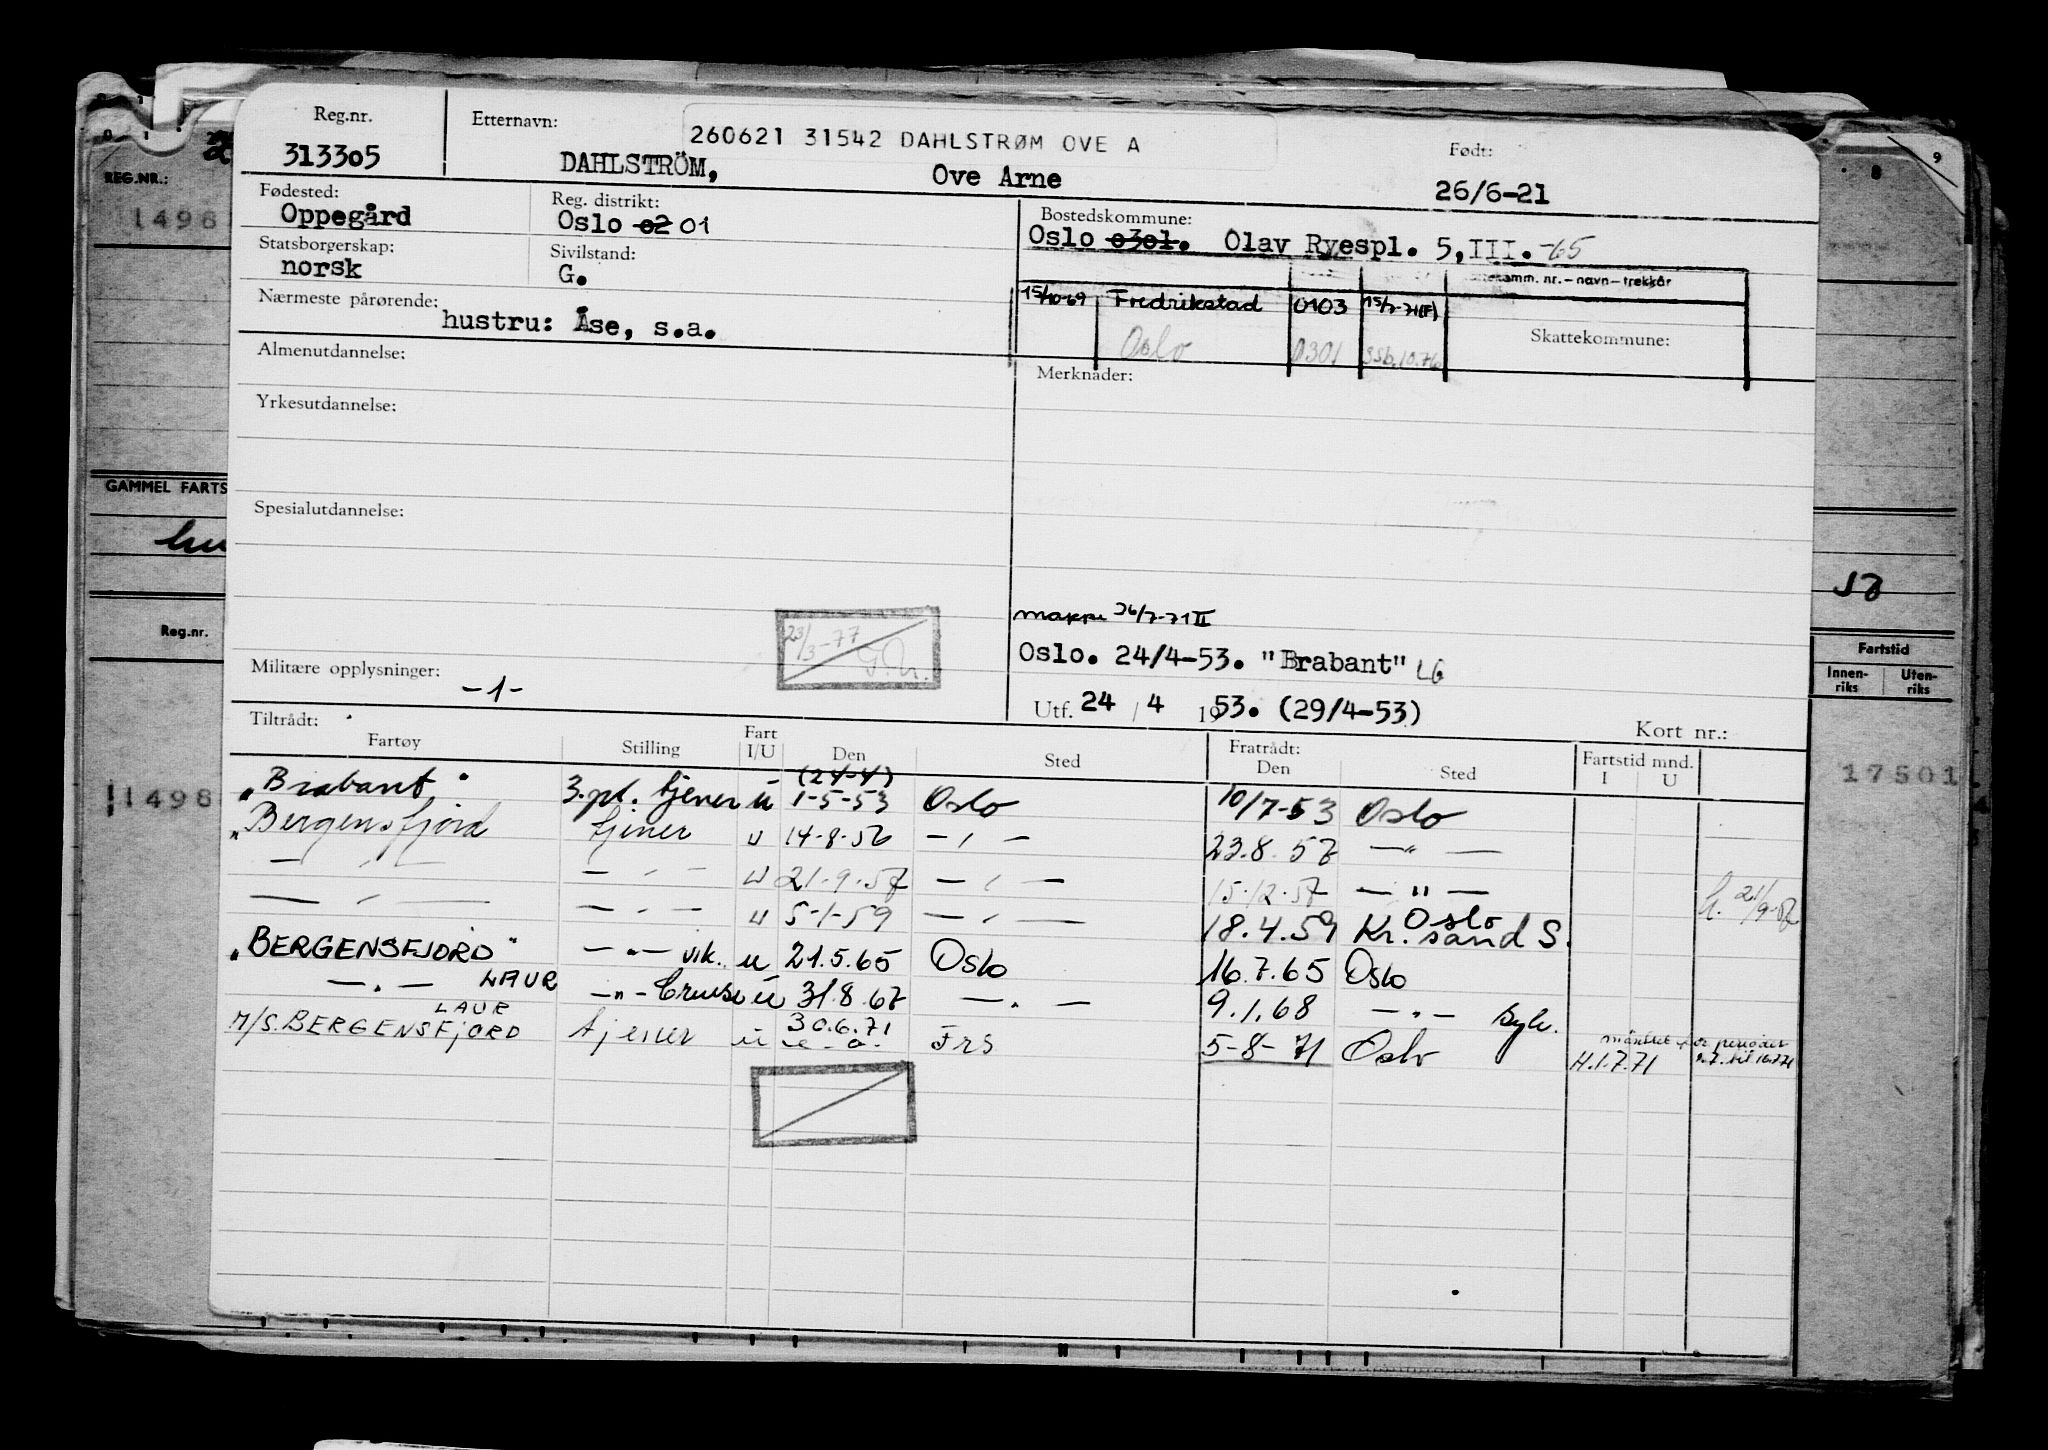 Reg.nr. Etternavn: 260621 31542 DAHLSTRØM OVE A Født:
313305 DAHLSTRÖM, Ove Arne 26/6-21
Fødested: Reg. distrikt: Bostedskommune:
Oppegård Oslo 02 01 Oslo 0301. Olav Ryespl. 5, III. -65
Statsborgerskap: Sivilstand:
norsk G.
tekamm. nr. – navn – trekkår
Nærmeste pårørende: hustru: Åse, s.a.
15/10-69 Fredrikstad 0103 15/7-71(F)
Oslo 0301 SSb.10.76
Skattekommune:
Almenutdannelse: Merknader:
Yrkesutdannelse:
Spesialutdannelse:
26/7-71 II
23/3-77
Oslo. 24/4-53. "Brabant" LG
Militære opplysninger: -1-
Utf. 24 / 4 1953. (29/4-53)
Kort nr.:
Tiltrådt: Fratrådt: Fartstid mnd.
Fartøy Stilling Fart I/U Den Sted Den Sted I U
"Brabant" 3.pl. tjener u (24-4) 1-5-53 Oslo 10/7-53 Oslo
"Bergensfjord tjener u 14-8-56 — " — 23.8.57 — " —
— " — — " — u 21-9-57 — " — 15.12.57 — " — h. 21/9-57
— " — — " — u 5-1-59 — " — 18.4.59 Oslo Kr.sand S.
"BERGENSFJORD" — " — vik. u 21.5.65 Oslo 16.7.65 Oslo
— " — LAUR — " — Cruise u 31.8.67 — " — 9.1.68 — " —
M/S. BERGENSFJORD LAUR tjener u 30.6.71 Frs 5-8-71 Oslo H.1.7.71 periodet 2.7. til 16.7.71
REG.NR.:
1498
GAMMEL FARTS
Reg.nr.
1498
9
8
Fartstid
Innen-riks Uten-riks
17501